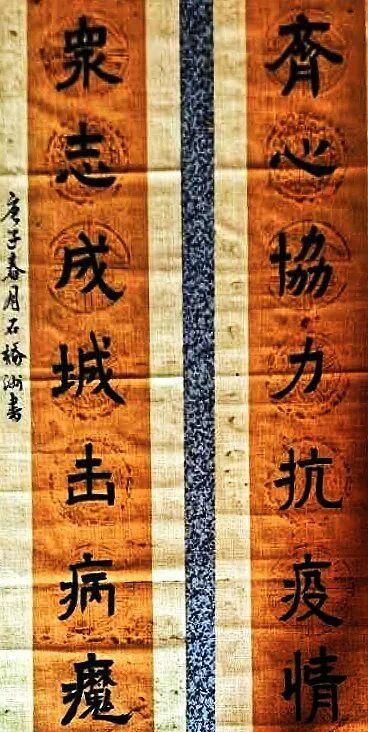 齊心協力抗疫情
衆志成城击病魔
庚子春月石桥洲書